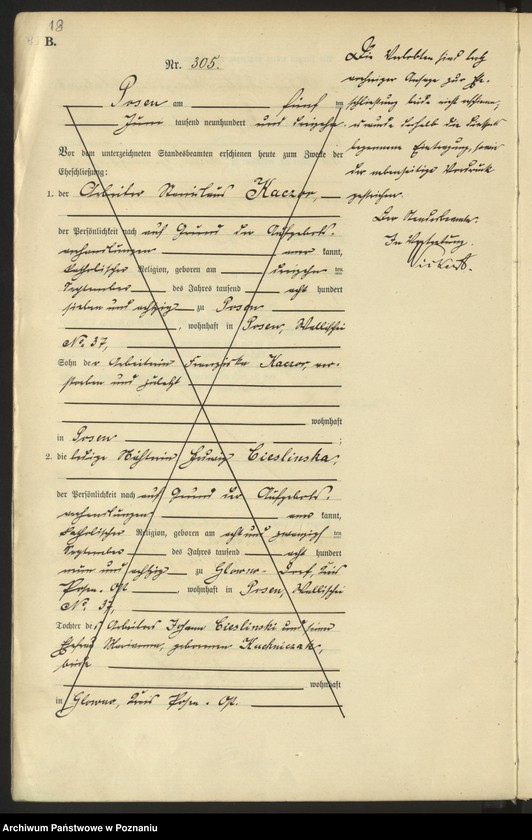 18
B.
Nr. 305.
Posen am fünf ten
Juni tausend neunhundert und dreizehn
Vor dem unterzeichneten Standesbeamten erschienen heute zum Zwecke der
Eheschließung:
1. der Arbeiter Stanislaus Kaczor,
der Persönlichkeit nach auf Grund der Aufgebots-
verhandlungen aner kannt,
katholischer Religion, geboren am dreizehn ten
September des Jahres tausend acht hundert
sieben und achtzig zu Posen
, wohnhaft in Posen, Wallischei
No. 37,
Sohn der Arbeiterin Franziska Kaczor, ver-
storben und zuletzt
wohnhaft
in Posen ;
2. die ledige Nähterin Hedwig Cieslinska,
der Persönlichkeit nach auf Grund der Aufgebots-
verhandlungen aner kannt,
katholischer Religion, geboren am acht und zwanzig ten
September des Jahres tausend acht hundert
neun und achtzig zu Glowno-Dorf, Kreis
Posen-Ost , wohnhaft in Posen, Wallischei
No. 37,
Tochter des Arbeiters Johann Cieslinski und seiner
Ehefrau Marianna, geborenen Kuchniczak,
beide
wohnhaft
in Glowno, Kreis Posen-Ost.
Die Verlobten sind trotz
vorheriger Ansage zur Ehe-
schließung beide nicht erschienen,
es wurde deshalb die bereits
begonnene Eintragung, sowie
der nebenseitige Vordruck
gestrichen.
Der Standesbeamte.
In Vertretung.
Archiwum Państwowe w Poznaniu